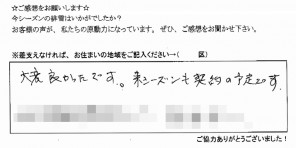 ☆ご感想をお願いします☆
今シーズンの排雪はいかがでしたか？
お客様の声が、私たちの原動力になっています。ぜひ、ご感想をお聞かせ下さい。
※差支えなければ、お住まいの地域をご記入ください→（　　　区）
大変良かったです。来シーズンも契約の予定です。
ご協力ありがとうございました！